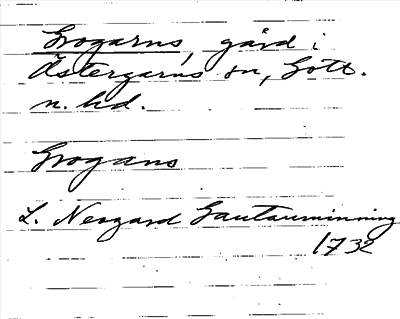 Grogarns, gård i
Östergarns sn, Gotl.
n. hd.
Grogans
L. Neogard Gautauminning
1732